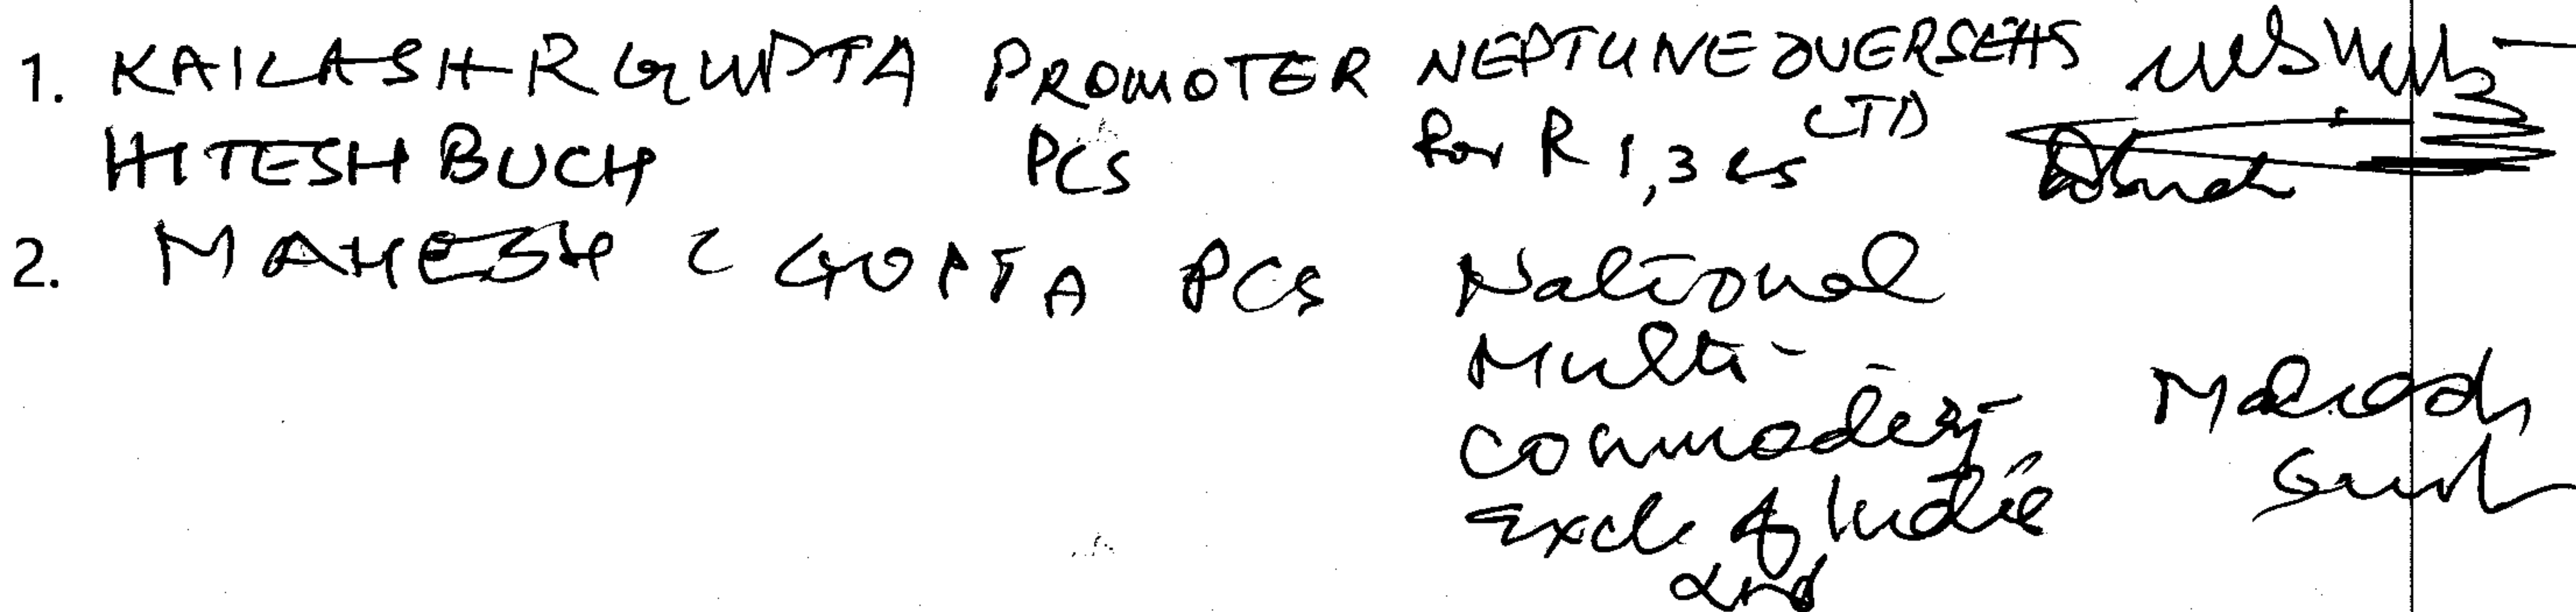 1. KAILASH R GUPTA PROMOTER NEPTUNE OVERSEAS
LTD
HITESH BUCH PCS for R 1, 3 & 5
2. MAHESH C GUPTA PCS National
Multi-
Commodity
Exch. of India
Ltd